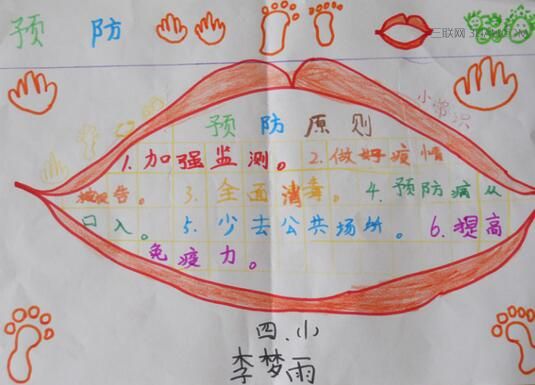 预防
三联网 3LIAN.COM
小常识
预防原则
1.加强监测。2.做好疫情
报告。3.全面消毒。4.预防病从
口入。5.少去公共场所。6.提高
免疫力。
四.小
李梦雨